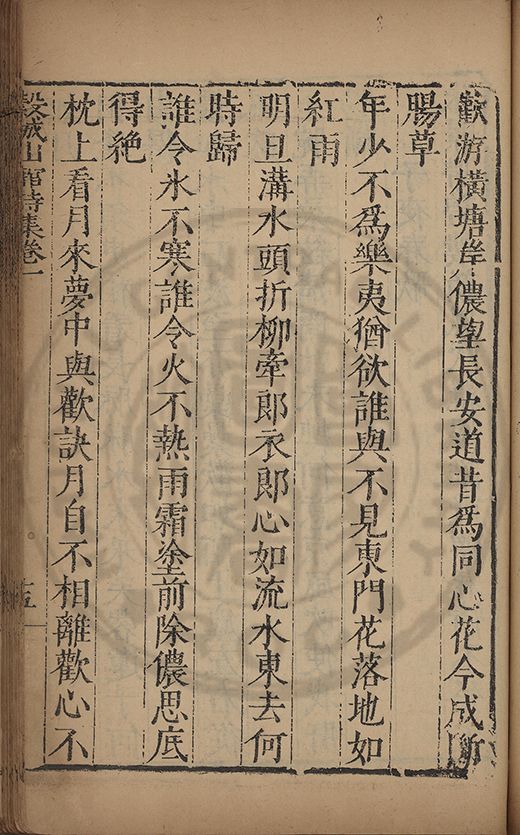 歡游橫塘岸儂望長安道昔爲同心花今成斷
腸草
年少不爲樂夷猶欲誰與不見東門花落地如
紅雨
明旦溝水頭折柳牽郎衣郎心如流水東去何
時歸
誰令氷不寒誰令火不熱雨霜塗前除儂思底
得絶
枕上看月來夢中與歡訣月自不相離歡心不
穀城山館詩集卷一
十五